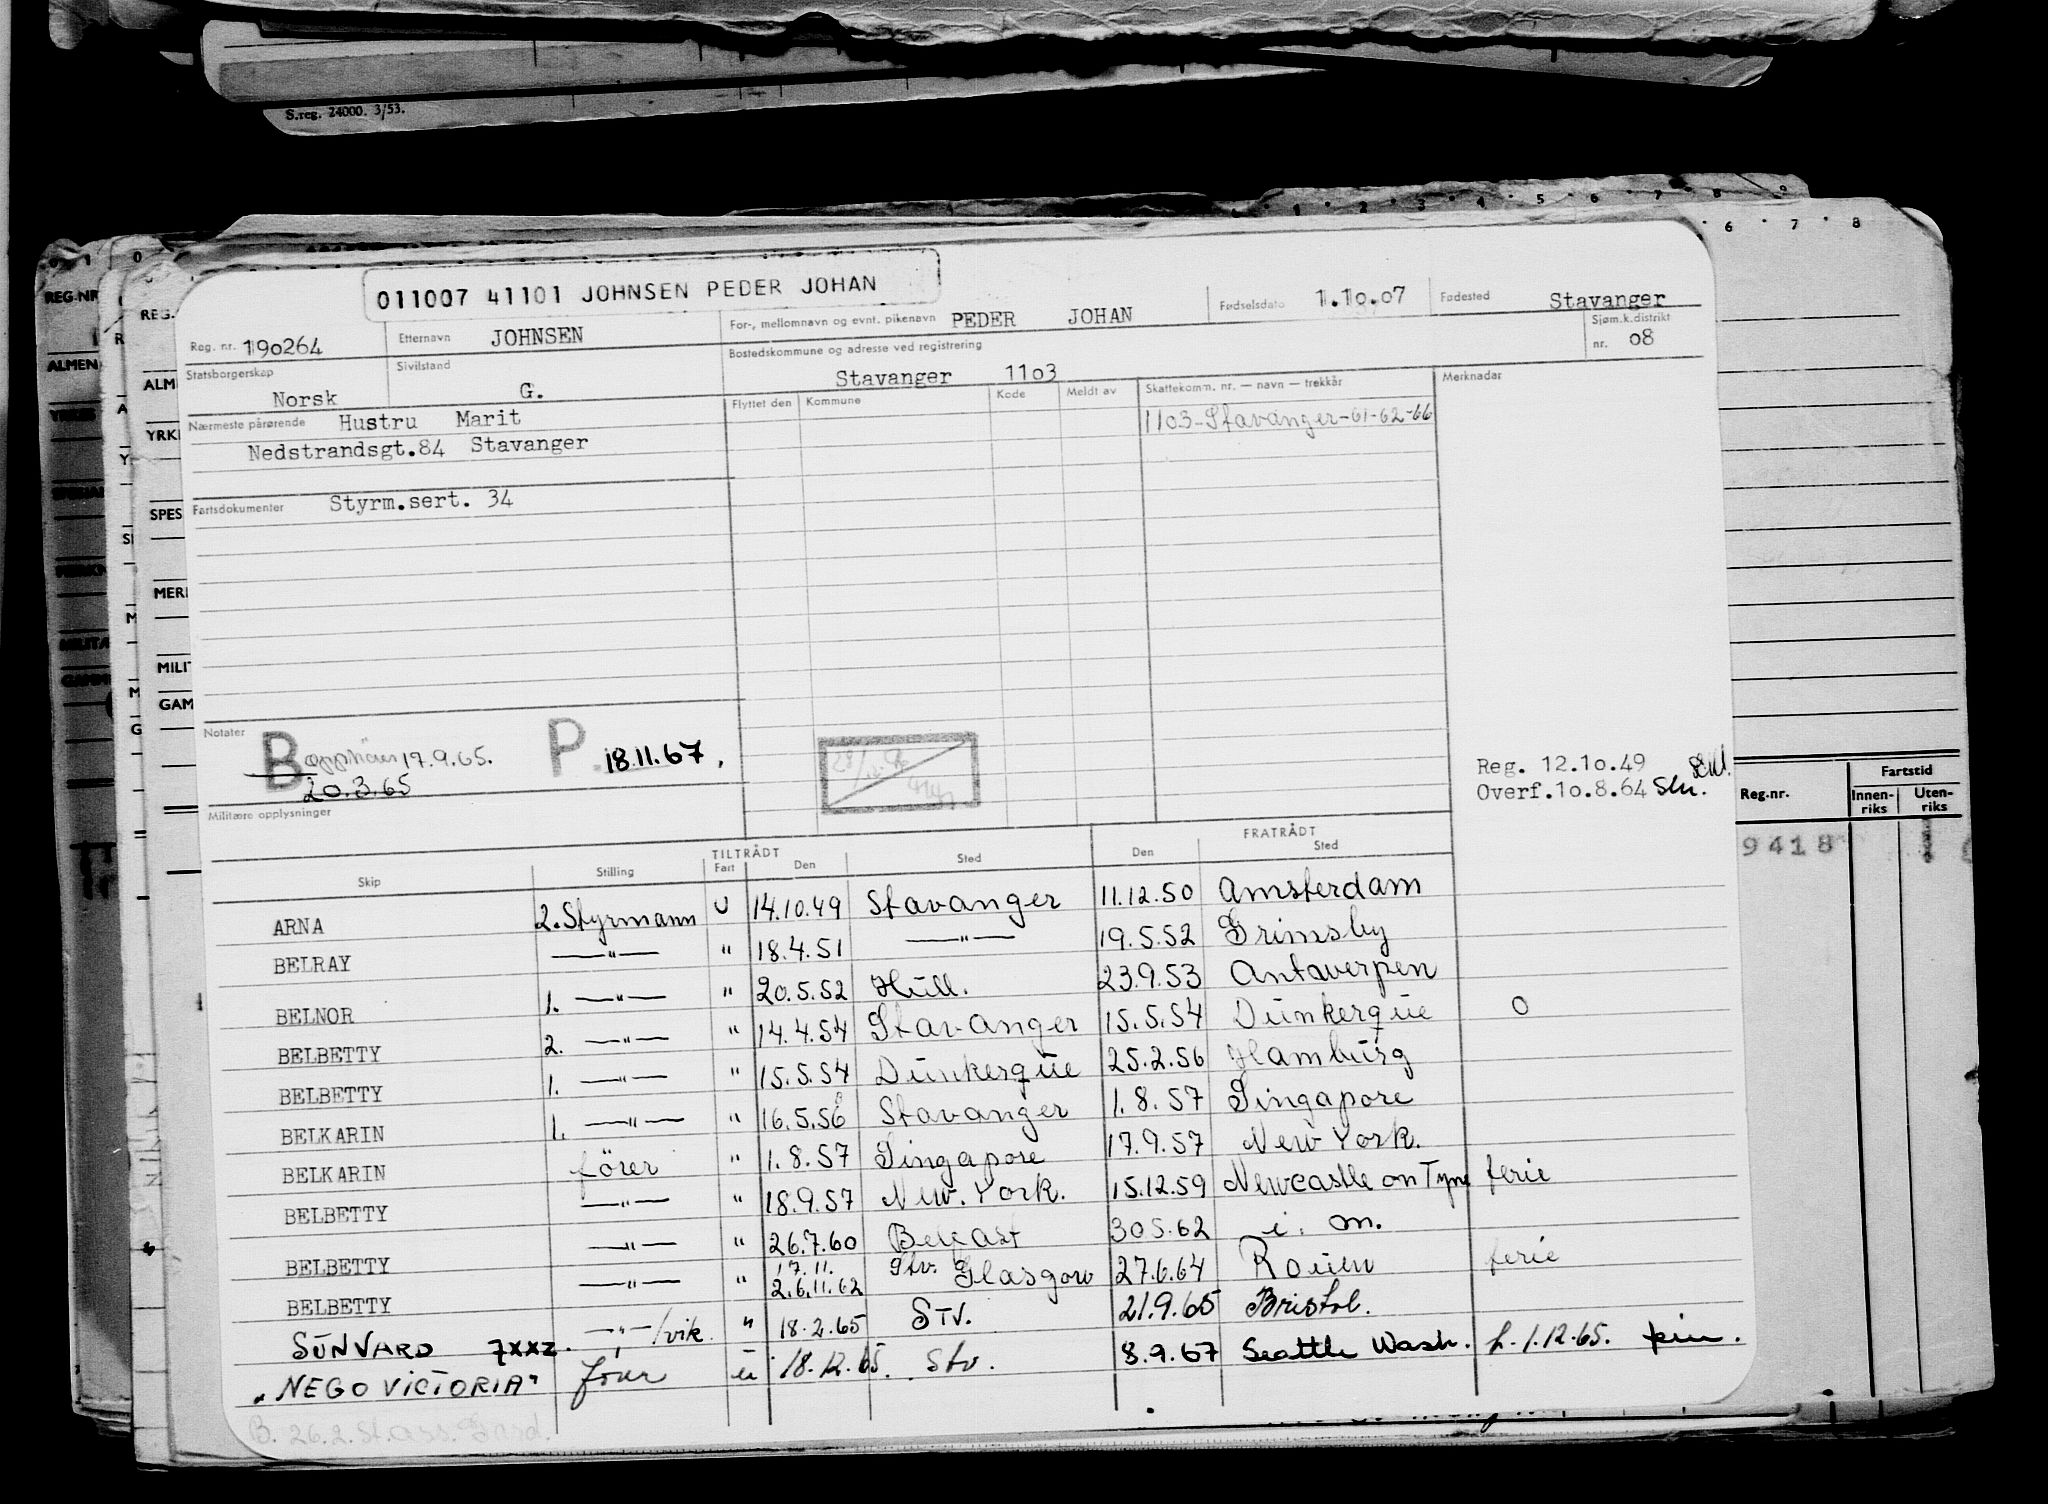 S.reg. 24000. 3/53.
1 2 3 4 5 6 7 8 9
6 7 8
0 1 0
REG.NR
REG.
ALMEN
ALM
YRKE
SPES
MERI
MILIT
GAM
011007 41101 JOHNSEN PEDER JOHAN
Reg. nr. 190264 Etternavn JOHNSEN For-, mellomnavn og evnt. pikenavn PEDER JOHAN Fødselsdato 1.10.07 Fødested Stavanger
Statsborgerskap Norsk Sivilstand G. Bostedskommune og adresse ved registrering Stavanger 11o3 Sjøm.k.distrikt nr. o8
Nærmeste pårørende Hustru Marit Flyttet den Kommune Kode Meldt av Skattekomm. nr. — navn — trekkår Merknader
Nedstrandsgt.84 Stavanger 1103-Stavanger-61-62-66
Fartsdokumenter Styrm.sert. 34
Notater B 17.9.65. P 18.11.67.
20.3.65
Reg. 12.1o.49
Overf.1o.8.64
Militære opplysninger
Reg.nr. Fartstid
Innen-riks Uten-riks
9418
TILTRÅDT FRATRÅDT
Skip Stilling Fart Den Sted Den Sted
ARNA 2. Styrmann U 14.10.49 Stavanger 11.12.50 Amsterdam
BELRAY —"— " 18.4.51 —"— 19.5.52 Grimsby
BELNOR 1. —"— " 20.5.52 Hull. 23.9.53 Antwerpen
BELBETTY 2. —"— " 14.4.54 Stavanger 15.5.54 Dunkerque O
BELBETTY 1. —"— " 15.5.54 Dunkerque 25.2.56 Hamburg
BELKARIN 1. —"— " 16.5.56 Stavanger 1.8.57 Singapore
BELKARIN förer " 1.8.57 Singapore 17.9.57 New York.
BELBETTY —"— " 18.9.57 New. York. 15.12.59 Newcastle on Tyne ferie
BELBETTY —"— " 26.7.60 Belfast 30.5.62 i. m.
BELBETTY —"— " 17.11. 26.11.62 Stv. Glasgow 27.6.64 Rouen ferie
SUNVARD 7xxz. —"—/vik. " 18.2.65 STV. 21.9.65 Bristol.
"NEGO VICTORIA" förer u 18.12.65. Stv. 8.9.67 Seattle Wash. f. 1.12.65.
B. 26.2.